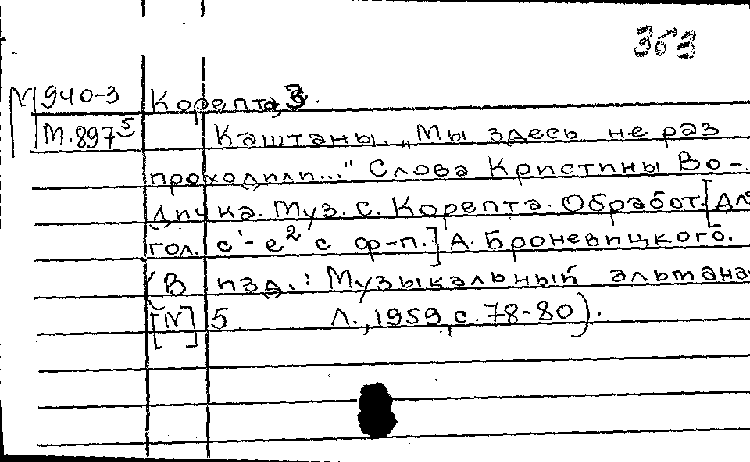 353
N 940-3 Корепта, З.
М.897⁵ Каштаны. „Мы здесь не раз
проходили..." Слова Кристины Во-
дничка. Муз. С. Корепта. Обработ. [для
гол. c¹-e² с ф-п.] А. Броневицкого.
(В изд.: Музыкальный альмана
[N] 5 Л., 1959, с. 78-80).